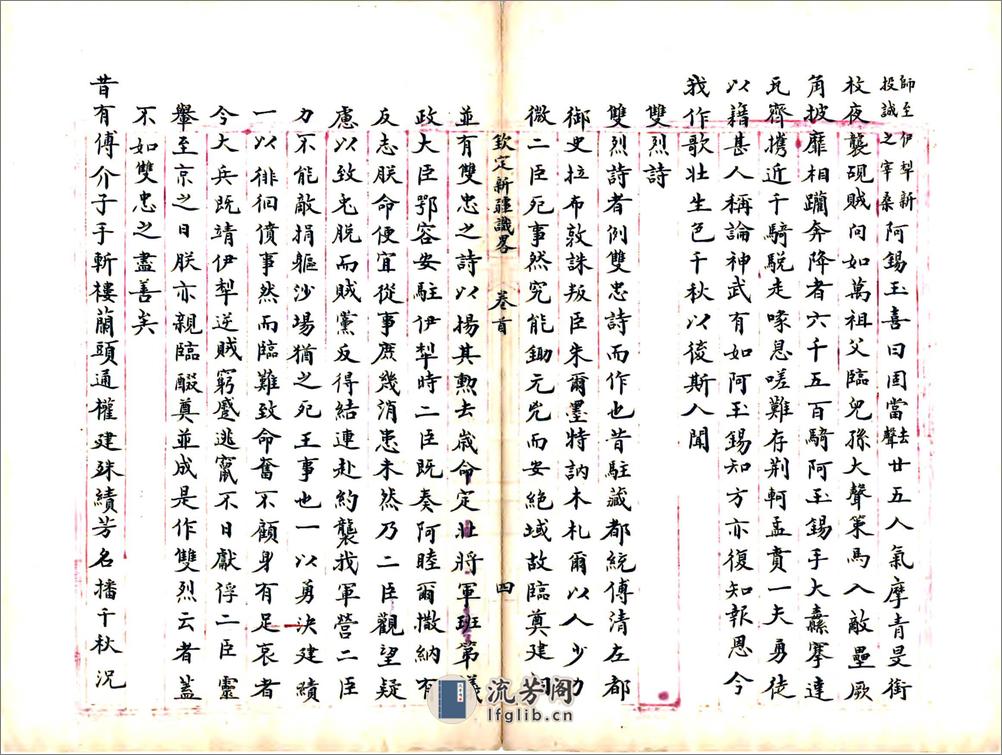 師至伊犁新投誠之宰桑阿錫玉喜曰固當去聲廿五人氣摩青旻銜
枚夜襲覘賊向如萬祖父臨兒孫大聲策馬入敵壘厥
角披靡相躪奔降者六千五百騎阿玉錫手大纛搴達
瓦齊攜近千騎駾走喙息嗟難存荆軻孟賁一夫勇徒
以藉甚人稱論神武有如阿玉錫知方亦復知報恩今
我作歌壯生色千秋以後斯人聞
雙烈詩
雙烈詩者例雙忠詩而作也昔駐藏都統傅清左都
御史拉布敦誅叛臣朱爾墨特訥木札爾以人少力
微二臣死事然究能鋤元兇而安絕域故臨奠建祠
欽定新疆識畧 卷首 四
並有雙忠之詩以揚其勲去歲命定北將軍班第議
政大臣鄂容安駐伊犁時二臣既奏阿睦爾撒納有
反志朕命便宜從事庶幾消患未然乃二臣觀望疑
慮以致兎脱而賊黨反得結連赴約襲我軍營二臣
力不能敵捐軀沙場猶之死王事也一以勇决建績
一以徘徊僨事然而臨難致命奮不顧身有足哀者
今大兵既靖伊犁逆賊窮蹙逃竄不日獻俘二臣靈
轝至京之日朕亦親臨酹奠並成是作雙烈云者蓋
不如雙忠之盡善矣
昔有傅介子手斬樓蘭頭通權建殊績芳名播千秋况
流芳阁
lfglib.cn